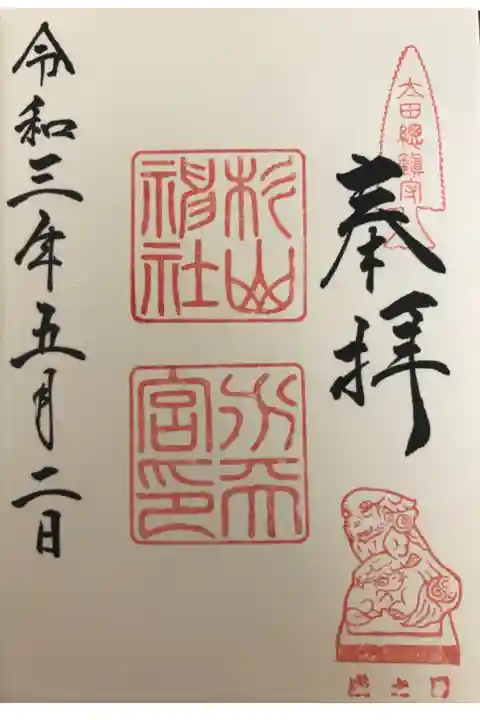 太田總鎮守
奉拝
杉山
神社
水天
宮印
令和三年五月二日